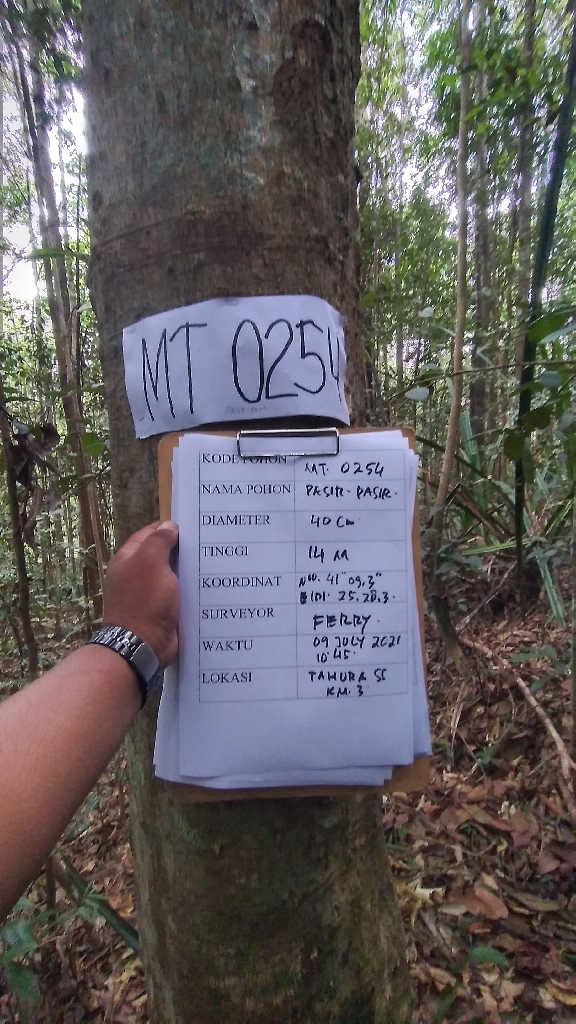 MT 0254
KODE POHON MT. 0254
NAMA POHON PASIR-PASIR.
DIAMETER 40 Cm
TINGGI 14 M
KOORDINAT N00. 41" 09,3"
E101. 25. 28.3.
SURVEYOR FERRY.
WAKTU 09 JULY 2021
10.45.
LOKASI TAHURA SS
KM. 3